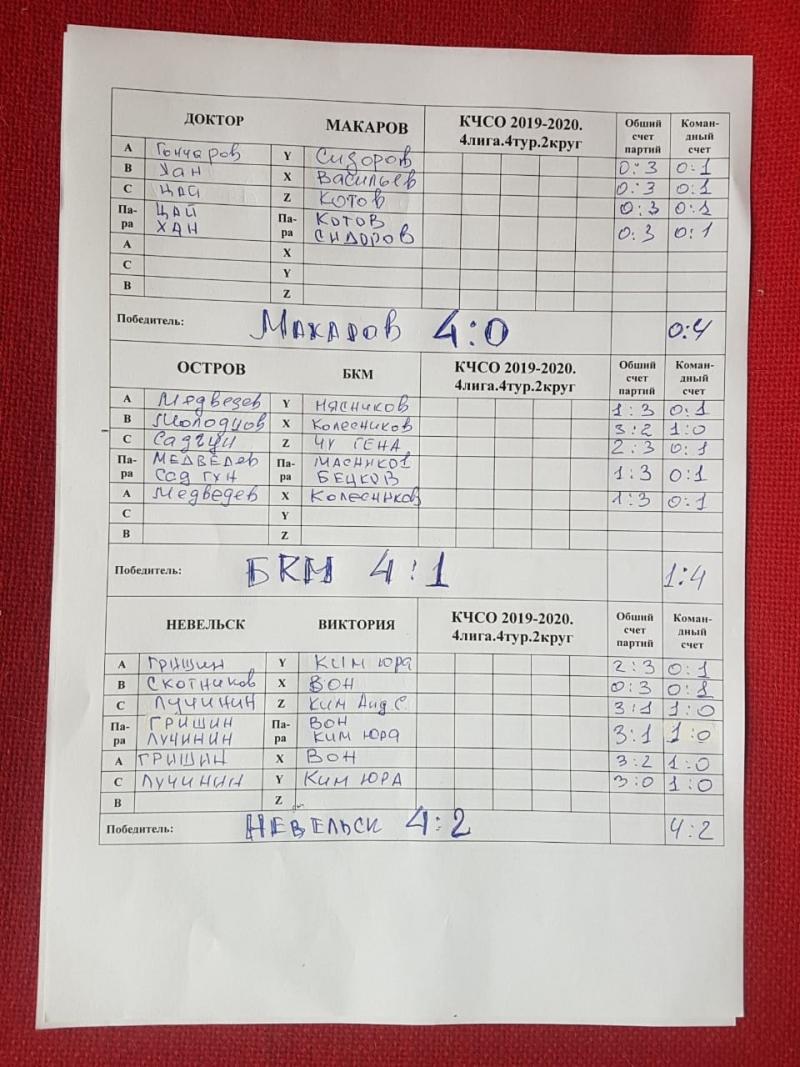 ДОКТОР МАКАРОВ КЧСО 2019-2020. 4лига.4тур.2круг Общий счет партий Коман-дный счет
A Гончаров Y Сидоров 0:3 0:1
B Хан X Васильев 0:3 0:1
C ЦАЙ Z КОТОВ 0:3 0:1
Па-ра ЦАЙ ХАН Па-ра КОТОВ СИДОРОВ 0:3 0:1
A X
C Y
B Z
Победитель: МАКАРОВ 4:0 0:4
ОСТРОВ БКМ КЧСО 2019-2020. 4лига.4тур.2круг Общий счет партий Коман-дный счет
A Медведев Y МЯСНИКОВ 1:3 0:1
B Молодцов X Колесников 3:2 1:0
C Садгун Z ЧУ ГЕНА 2:3 0:1
Па-ра МЕДВЕДЕВ Сад ГУН Па-ра МЯСНИКОВ БЕЦКОВ 1:3 0:1
A Медведев X Колесников 1:3 0:1
C Y
B Z
Победитель: БКМ 4:1 1:4
НЕВЕЛЬСК ВИКТОРИЯ КЧСО 2019-2020. 4лига.4тур.2круг Общий счет партий Коман-дный счет
A ГРИШИН Y КИМ ЮРА 2:3 0:1
B СКОТНИКОВ X ВОН 0:3 0:1
C ЛУЧИНИН Z КИМ 3:1 1:0
Па-ра ГРИШИН ЛУЧИНИН Па-ра ВОН КИМ ЮРА 3:1 1:0
A ГРИШИН X ВОН 3:2 1:0
C ЛУЧИНИН Y КИМ ЮРА 3:0 1:0
B Z
Победитель: НЕВЕЛЬСК 4:2 4:2